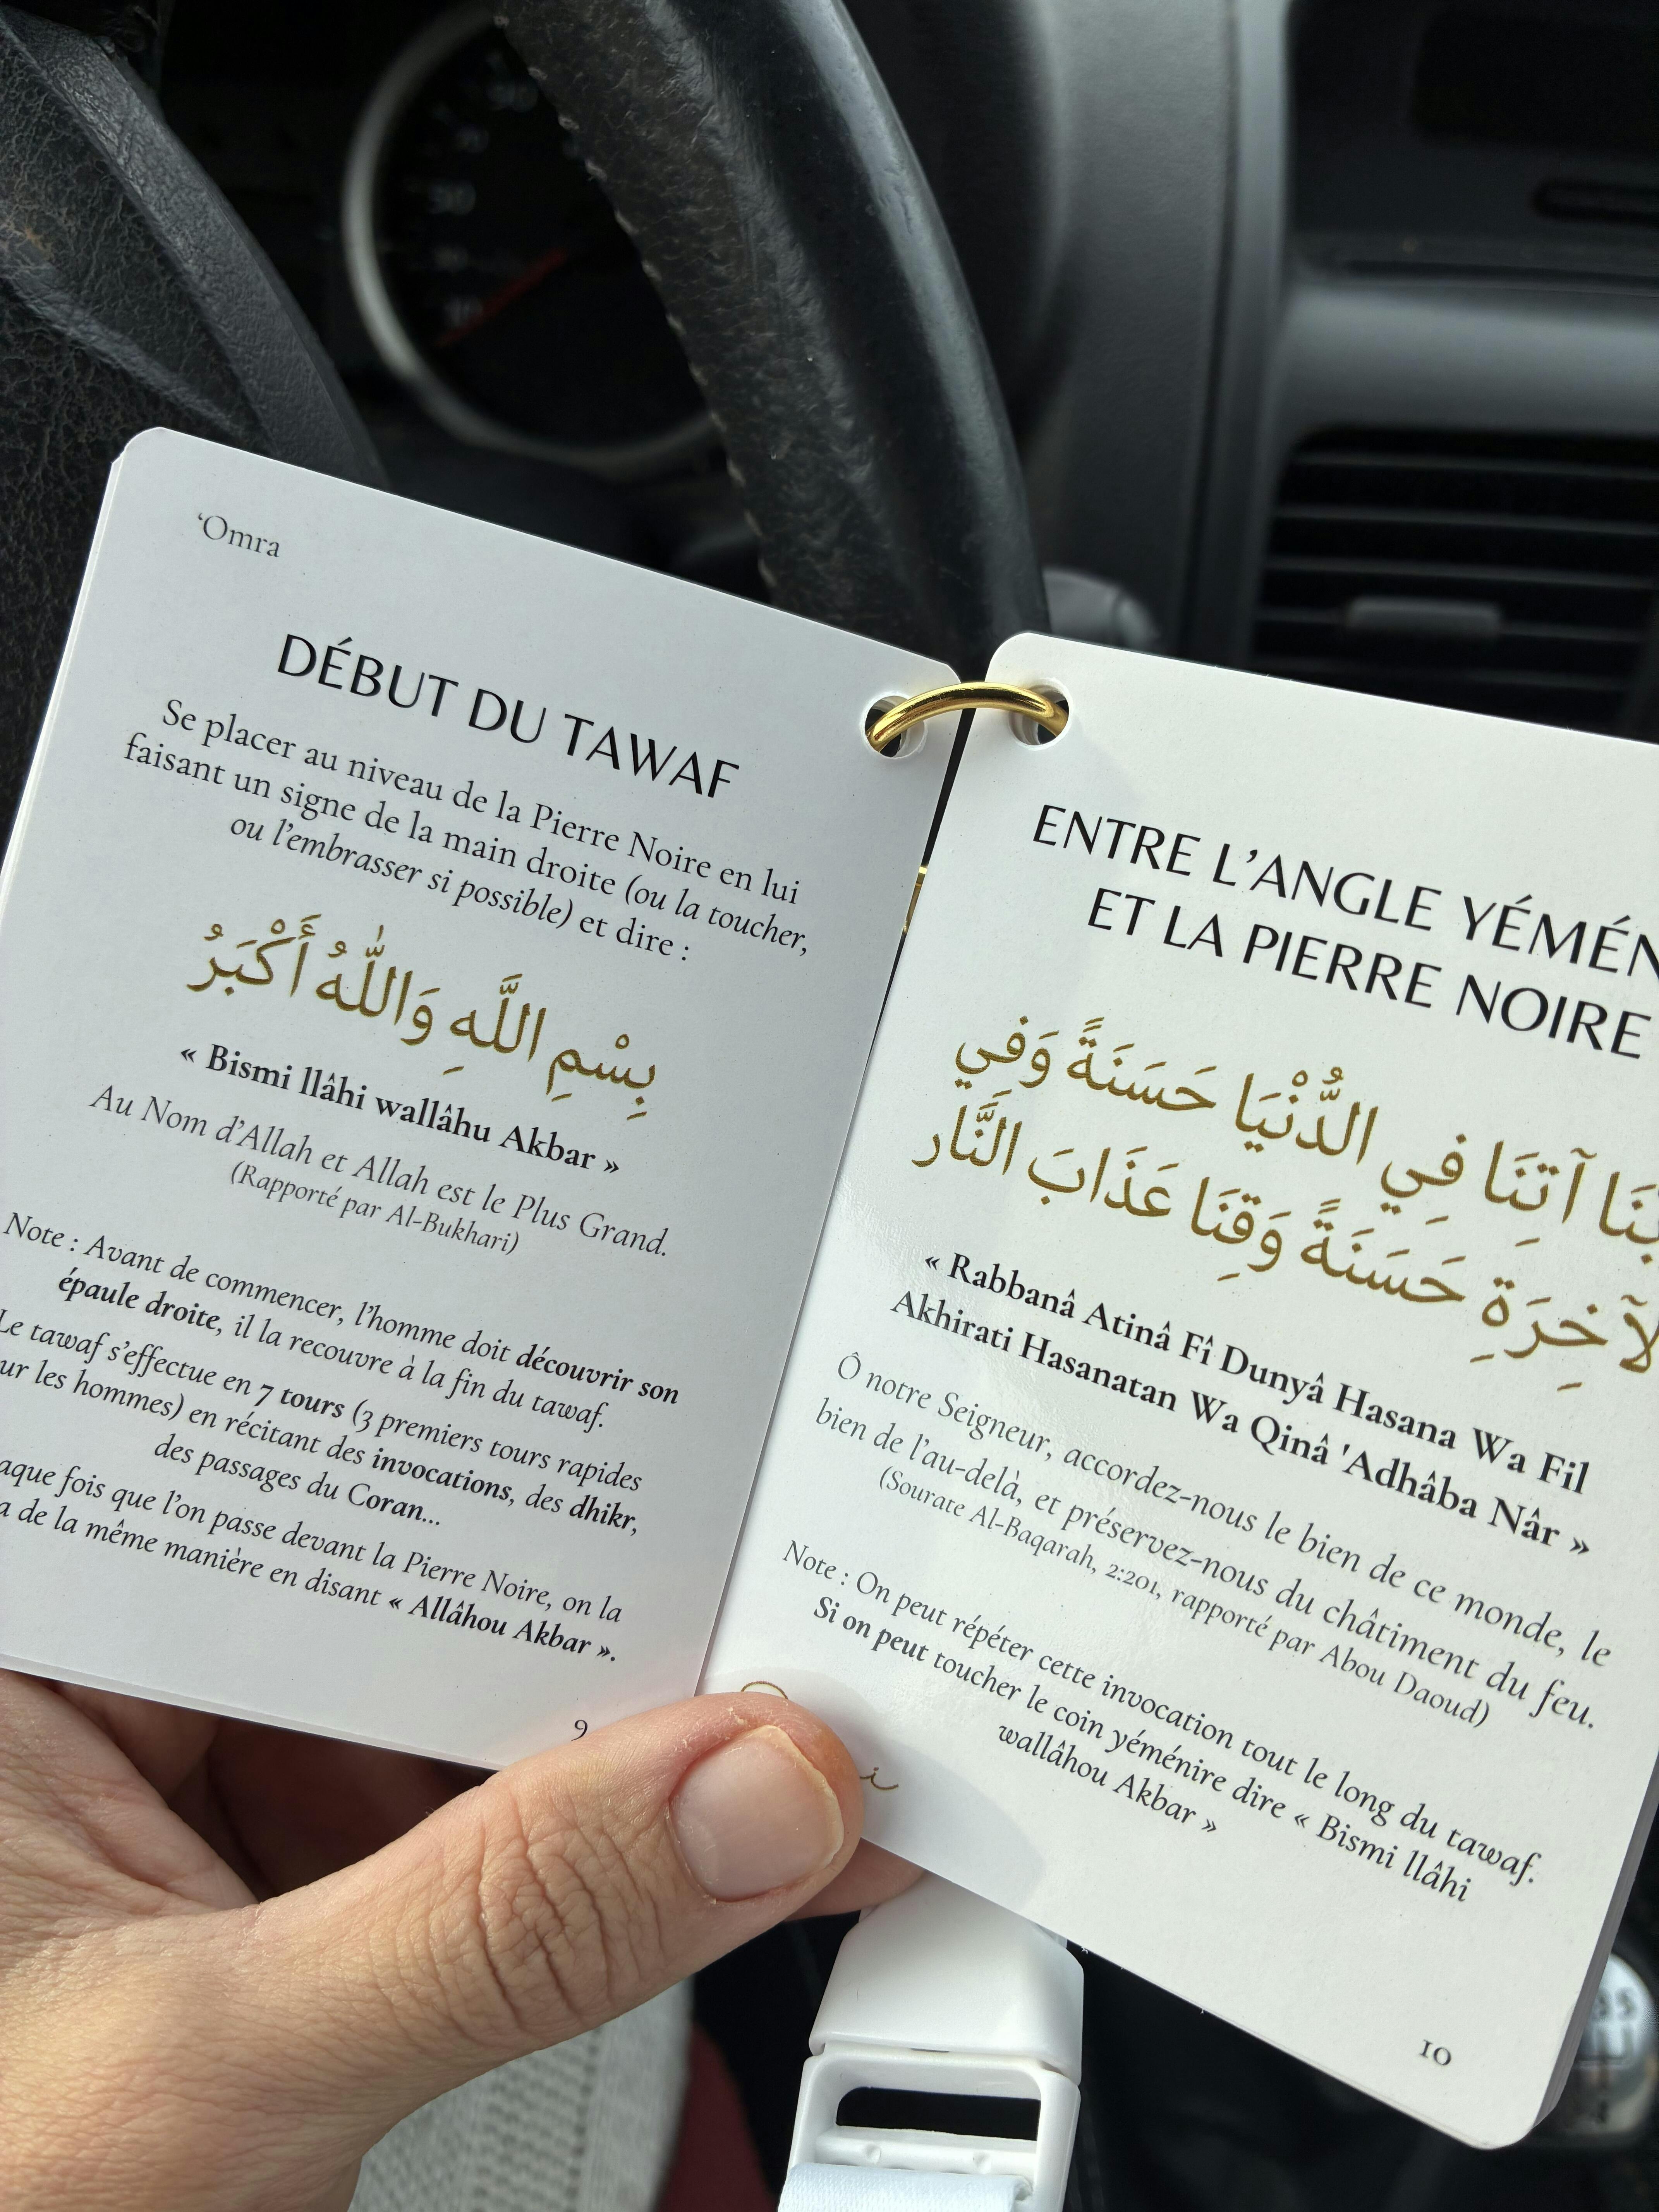 ‘Omra
DÉBUT DU TAWAF
Se placer au niveau de la Pierre Noire en lui
faisant un signe de la main droite (ou la toucher,
ou l’embrasser si possible) et dire :
بِسْمِ اللَّهِ وَاللّٰهُ أَكْبَرُ
« Bismi llâhi wallâhu Akbar »
Au Nom d’Allah et Allah est le Plus Grand.
(Rapporté par Al-Bukhari)
Note : Avant de commencer, l’homme doit découvrir son
épaule droite, il la recouvre à la fin du tawaf.
Le tawaf s’effectue en 7 tours (3 premiers tours rapides
les hommes) en récitant des invocations, des dhikr,
des passages du Coran...
fois que l’on passe devant la Pierre Noire, on la
de la même manière en disant « Allâhou Akbar ».
9
ENTRE L’ANGLE
ET LA PIERRE NOIRE
آتِنَا فِي الدُّنْيَا حَسَنَةً وَفِي
حَسَنَةً وَقِنَا عَذَابَ النَّار
« Rabbanâ Atinâ Fî Dunyâ Hasana Wa Fil
Akhirati Hasanatan Wa Qinâ 'Adhâba Nâr »
Ô notre Seigneur, accordez-nous le bien de ce monde, le
bien de l’au-delà, et préservez-nous du châtiment du feu.
(Sourate Al-Baqarah, 2:201, rapporté par Abou Daoud)
Note : On peut répéter cette invocation tout le long du tawaf.
Si on peut toucher le coin yéménire dire « Bismi llâhi
wallâhou Akbar »
10